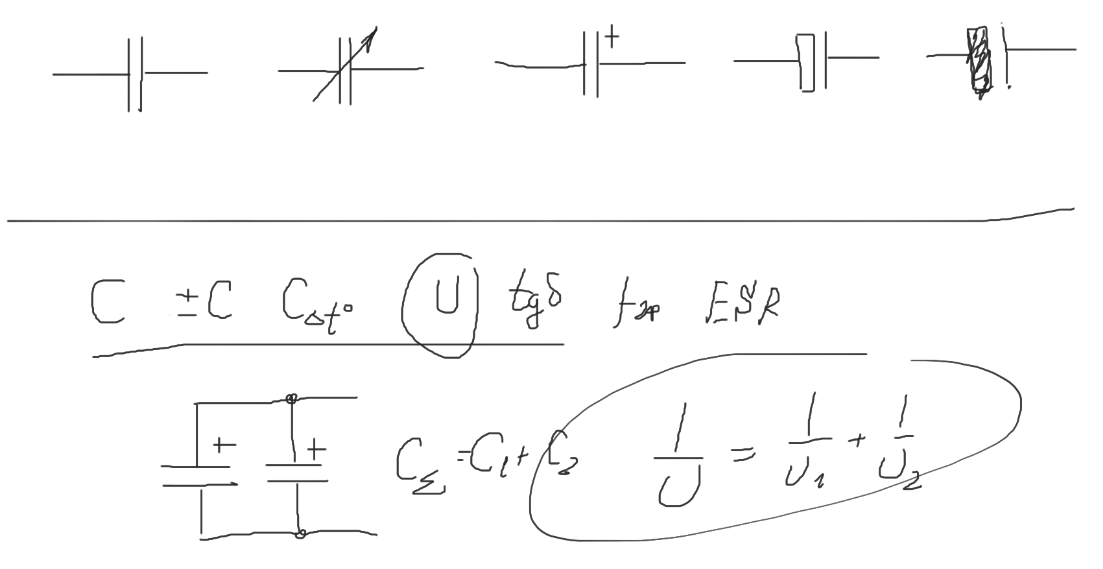 +
C ±C C Δt° U tgδ fгр ESR
+ +
CΣ = C1 + C2 1/U = 1/U1 + 1/U2